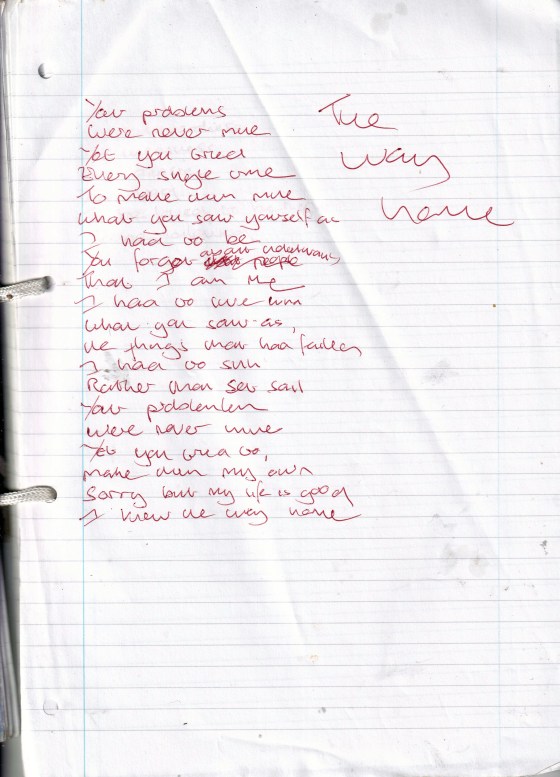 The
way
home
Your problems
Were never mine
Yet you tried
Every single time
To make them mine
What you saw yourself as
I had to be
You forgot about individuals
people
That I am me
I had to live with
what you saw as,
the things that had failed
I had to sink
Rather than set sail
Your problem
were never mine
Yet you tried to,
make them my own
Sorry but my life is good
I know the way home